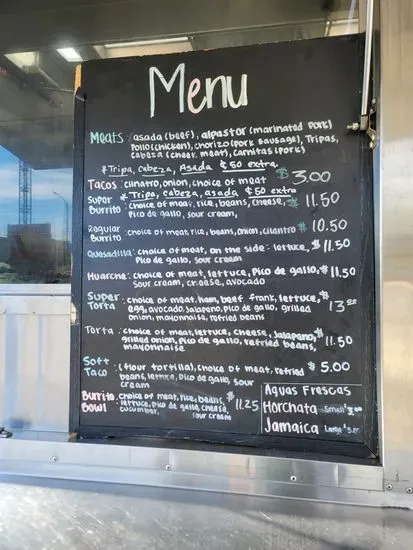 Menu
Meats: asada (beef), alpastor (marinated pork)
Pollo (chicken), chorizo (pork sausage), Tripas,
cabeza (cheek meat), carnitas (pork)
* Tripa, cabeza, Asada ¢50 extra.
Tacos: cilnatro, onion, choice of meat $3.00
* Tripa, cabeza, asada ¢50 extra
Super Burrito: choice of meat, rice, beans, cheese, $11.50
Pico de gallo, sour cream,
Regular Burrito: choice of meat, rice, beans, onion, cilantro $10.50
Quesadilla: choice of meat, on the side: lettuce, $11.50
Pico de gallo, sour cream
Huarche: choice of meat, lettuce, Pico de gallo, $11.50
sour cream, cheese, avocado
Super Torta: choice of meat, ham, beef frank, lettuce, $13.00
egg, avocado, jalapeno, pico de gallo, grilled
onion, mayonnaise, refried beans
Torta: choice of meat, lettuce, cheese, jalapeno, $11.50
grilled onion, pico de gallo, refried beans,
mayonnaise
Soft Taco: (flour tortilla), choice of meat, refried $5.00
beans, lettuce, pico de gallo, sour
cream
Burrito Bowl: choice of meat, rice, beans, $11.25
lettuce, pico de gallo, cheese,
cucumber, sour cream
Aguas Frescas
Horchata Small $3.00
Jamaica Large $5.00